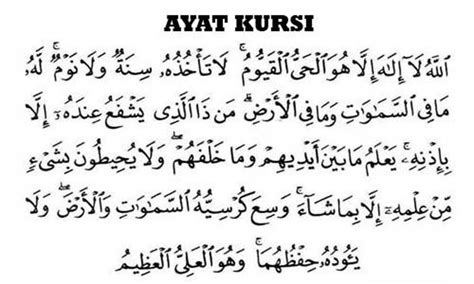 AYAT KURSI
ٱللَّهُ لَآ إِلَـٰهَ إِلَّا هُوَ ٱلْحَىُّ ٱلْقَيُّومُ ۚ لَا تَأْخُذُهُۥ سِنَةٌ وَلَا نَوْمٌ ۚ لَّهُۥ
مَا فِى ٱلسَّمَـٰوَٰتِ وَمَا فِى ٱلْأَرْضِ ۗ مَن ذَا ٱلَّذِى يَشْفَعُ عِندَهُۥٓ إِلَّا
بِإِذْنِهِۦ ۚ يَعْلَمُ مَا بَيْنَ أَيْدِيهِمْ وَمَا خَلْفَهُمْ ۖ وَلَا يُحِيطُونَ بِشَىْءٍ
مِّنْ عِلْمِهِۦٓ إِلَّا بِمَا شَآءَ ۚ وَسِعَ كُرْسِيُّهُ ٱلسَّمَـٰوَٰتِ وَٱلْأَرْضَ ۖ وَلَا
يَـُٔودُهُۥ حِفْظُهُمَا ۚ وَهُوَ ٱلْعَلِىُّ ٱلْعَظِيمُ